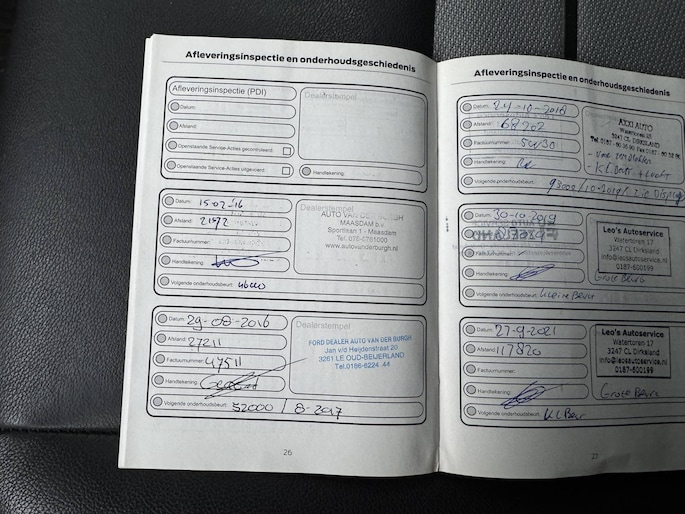 Afleveringsinspectie en onderhoudsgeschiedenis
Afleveringsinspectie (PDI)
Dealerstempel
Datum:
Afstand:
Openstaande Service-Acties gecontroleerd:
Openstaande Service-Acties uitgevoerd:
Handtekening:
Datum: 15-02-'16
Afstand:
Factuurnummer:
Handtekening:
Volgende onderhoudsbeurt:
Dealerstempel
AUTO VAN DER BURGH
MAASDAM b.v.
Sportlaan 1 - Maasdam
Tel. 078-6761000
www.autovanderburgh.nl
Datum: 29-08-2016
Afstand: 27211
Factuurnummer: 47511
Handtekening:
Volgende onderhoudsbeurt: 52000 / 8-2017
Dealerstempel
FORD DEALER AUTO VAN DER BURGH
Jan v/d Heijdenstraat 20
3261 LE OUD-BEIJERLAND
Tel.0186-6224 44
26
Afleveringsinspectie en onderhoudsgeschiedenis
Datum: 24-10-2018
Afstand: 68202
Factuurnummer:
Handtekening:
Volgende onderhoudsbeurt:
AXXI AUTO
Watertoren 23
3247 CL DIRKSLAND
Datum: 30-10-2019
Handtekening:
Volgende onderhoudsbeurt: kleine Beurt
Leo's Autoservice
Watertoren 17
3247 CL Dirksland
info@leosautoservice.nl
0187-600199
Grote Beurt
Datum: 27-9-2021
Afstand: 117820
Factuurnummer:
Handtekening:
Volgende onderhoudsbeurt: Kl Beurt
Leo's Autoservice
Watertoren 17
3247 CL Dirksland
info@leosautoservice.nl
0187-600199
Grote Beurt
27